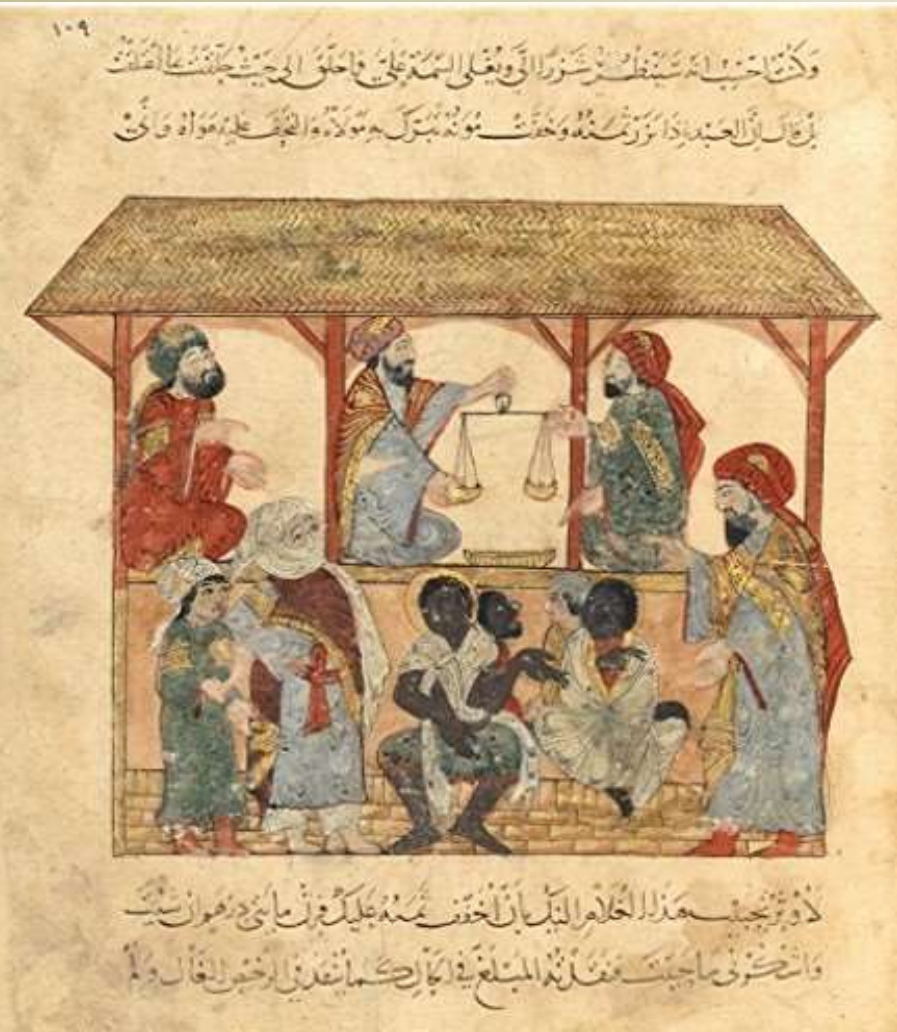 ١٠٩
وكنت احسب انه سينظر شزرا الي ويغلي السيمة علي فما حلق الى حيث حلقت
بل قال ان العبد اذا نزر ثمنه وخفت مونه تبرك به مولاه والتحف عليه هواه واني
لاوثر تحبيب هذا الغلام اليك بان اخفف ثمنه عليك فزن مائتي درهم ان شئت
واشكر لي ما حييت فنقدته المبلغ في الحال كما ينقد في الرخيص الغال ولم